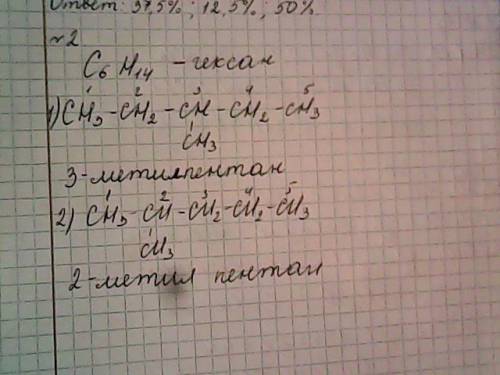 Ответ: 37,5%; 12,5%; 50%
№2
C₆H₁₄ - гексан
1 2 3 4 5
1) CH₃-CH₂-CH-CH₂-CH₃
CH₃
3-метилпентан
1 2 3 4 5
2) CH₃-CH-CH₂-CH₂-CH₃
CH₃
2-метил пентан